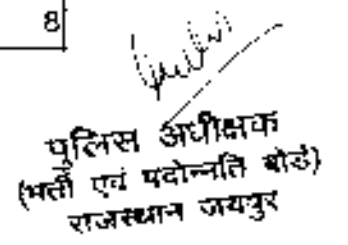 8
पुलिस अधीक्षक
(भर्ती एवं पदोन्नति बोर्ड)
राजस्थान जयपुर